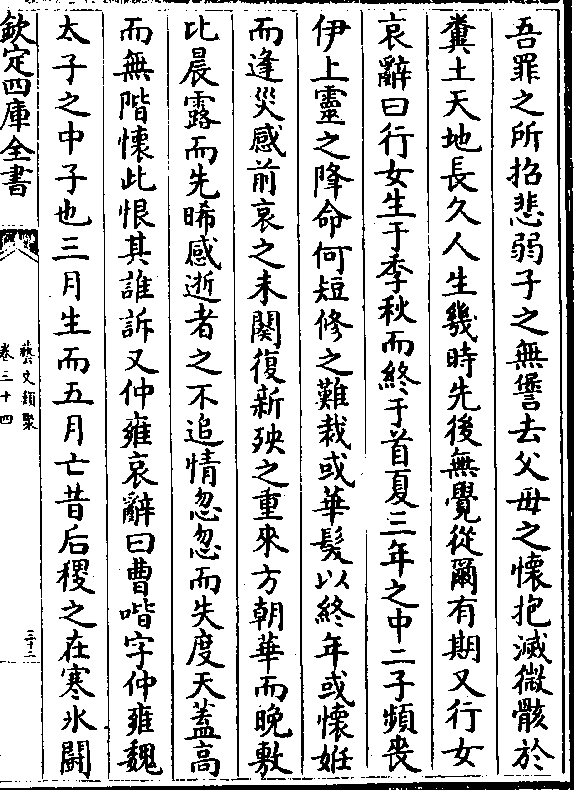 吾罪之所招悲弱子之無諐去父母之懷抱滅微骸於
糞土天地長久人生幾時先後無覺從爾有期又行女
哀辭曰行女生于季秋而終于首夏三年之中二子頻喪
伊上靈之降命何短修之難裁或華髮以終年或懷妊
而逢災感前哀之未闋復新殃之重來方朝華而晚敷
比晨露而先晞感逝者之不追情忽忽而失度天蓋高
而無階懷此恨其誰訴又仲雍哀辭曰曹喈字仲雍魏
太子之中子也三月生而五月亡昔后稷之在寒氷鬬
欽定四庫全書
藝文類聚
卷三十四
三十二